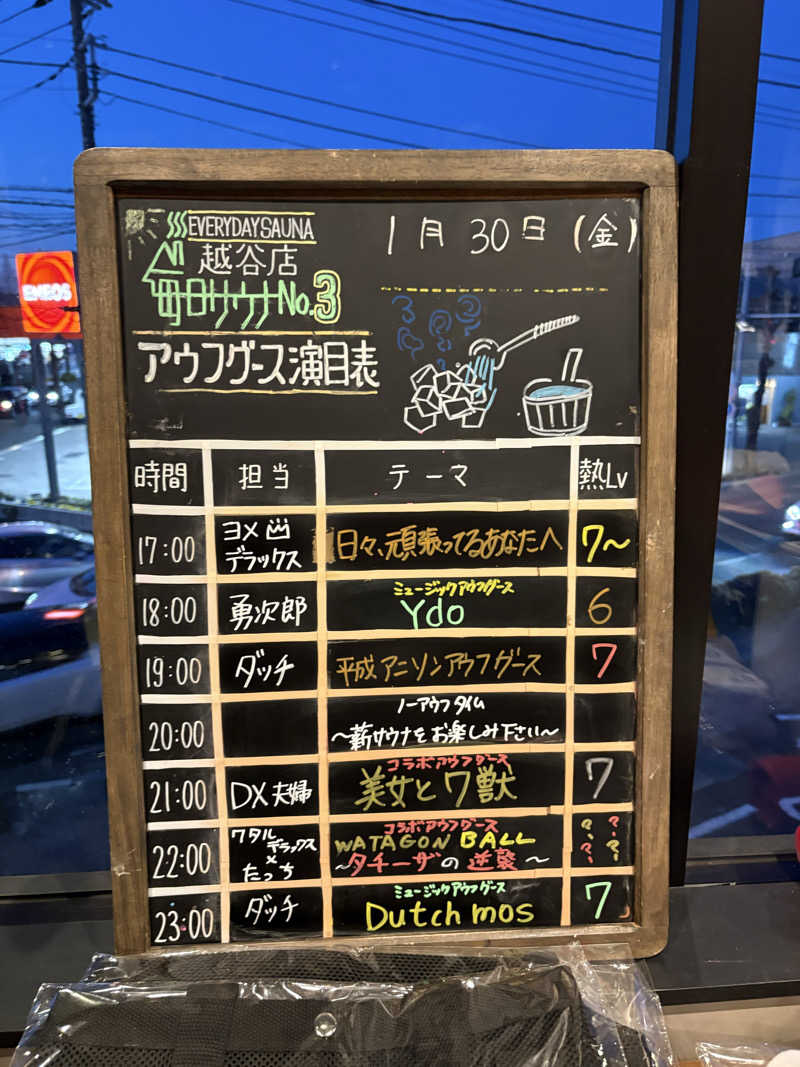 EVERYDAY SAUNA
越谷店
毎日サウナNo.3
アウフグース演目表
1月30日(金)
ENEOS
時間 担当 テーマ 熱Lv
17:00 ヨメ デラックス 日々、頑張ってるあなたへ 7〜
18:00 勇次郎 ミュージックアウフグース
Ydo 6
19:00 ダッチ 平成アニソンアウフグース 7
20:00 ノーアウフタイム
〜薪サウナをお楽しみ下さい〜
21:00 DX夫婦 コラボアウフグース
美女とワ獣 7
22:00 ワタルデラックス×たっち コラボアウフグース
WATAGON BALL
〜タチーザの逆襲〜 ????
23:00 ダッチ ミュージックアウフグース
Dutch mos 7